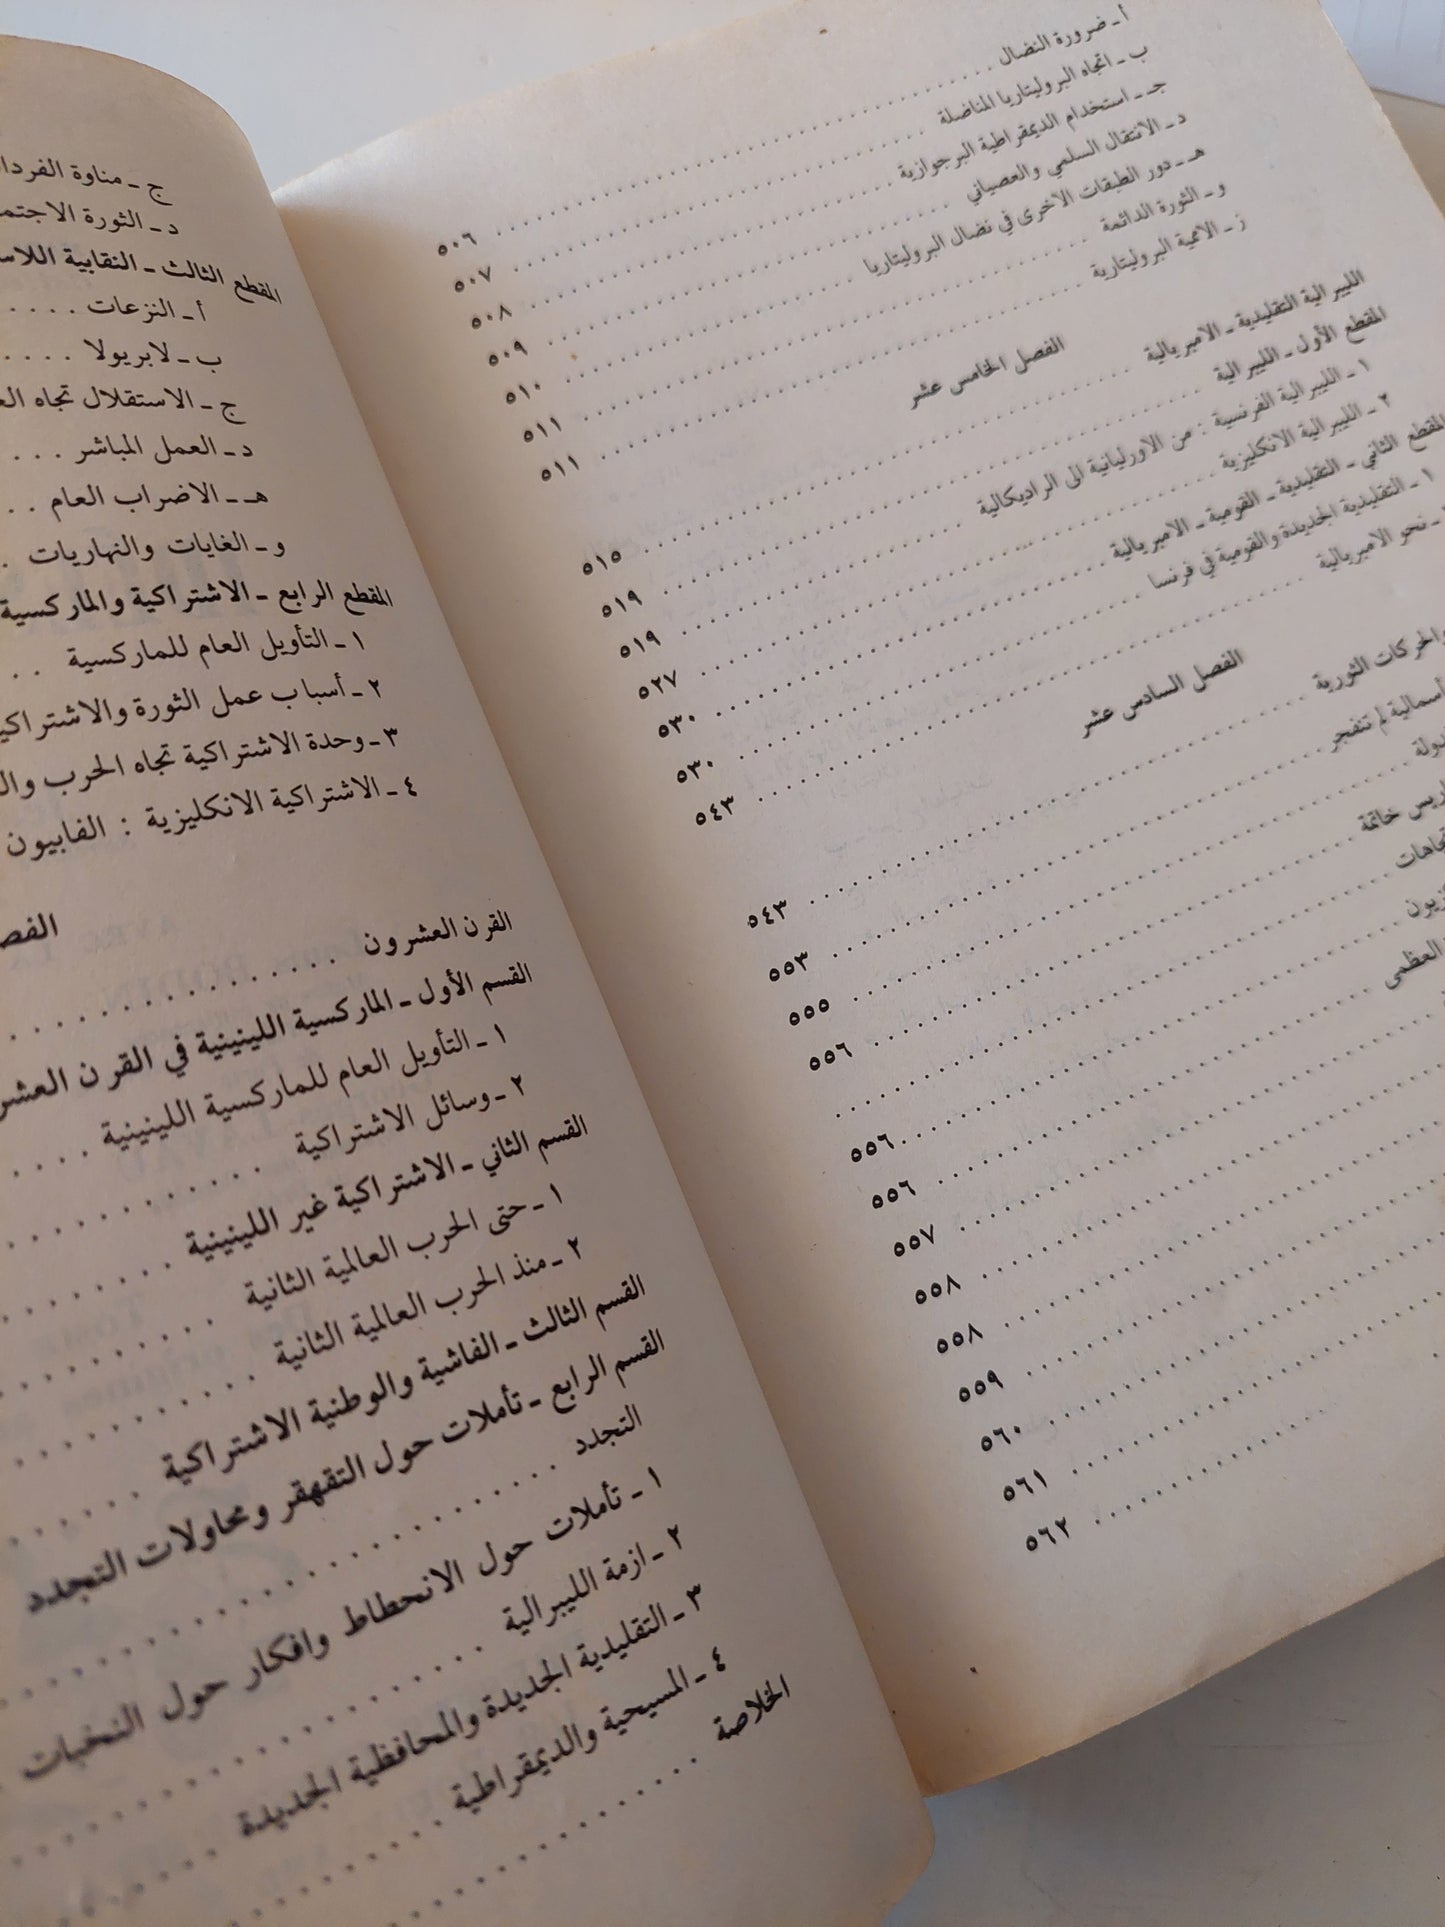 أ ـ ضرورة النضال ٥٠٦
ب ـ اتجاه البروليتاريا المناضلة ٥٠٧
جـ ـ استخدام الديمقراطية البرجوازية ٥٠٨
د ـ الانتقال السلمي والعصياني ٥٠٩
هـ ـ دور الطبقات الاخرى في نضال البروليتاريا ٥١٠
و ـ الثورة الدائمة ٥١١
ز ـ الاممية البروليتارية ٥١١
الفصل الخامس عشر
الليبرالية التقليدية ـ الامبريالية ٥١٥
المقطع الأول ـ الليبرالية ٥١٩
١ ـ الليبرالية الفرنسية : من الاورليانية الى الراديكالية ٥١٩
٢ ـ الليبرالية الانكليزية ٥٢٧
المقطع الثاني ـ التقليدية ـ القومية ـ الامبريالية ٥٣٠
١ ـ التقليدية الجديدة والقومية في فرنسا ٥٣٠
ـ نحو الامبريالية ٥٤٣
الفصل السادس عشر
والحركات الثورية ٥٤٣
لم تنفجر ٥٥٣
٥٥٥
خاتمة ٥٥٦
٥٥٦
٥٥٦
العظمى ٥٥٧
٥٥٨
٥٥٨
٥٥٩
٥٦٠
٥٦١
٥٦٢
ج ـ مناوة
د ـ الثورة
المقطع الثالث ـ النقابية
أ ـ النزعات
ب ـ لابريولا
ج ـ الاستقلال تجاه
د ـ العمل المباشر
هـ ـ الاضراب العام
و ـ الغايات والنهاريات
المقطع الرابع ـ الاشتراكية والماركسية
١ ـ التأويل العام للماركسية
٢ ـ أسباب عمل الثورة
٣ ـ وحدة الاشتراكية تجاه الحرب
٤ ـ الاشتراكية الانكليزية : الفابيون
القرن العشرون
القسم الأول ـ الماركسية اللينينية في القرن
١ ـ التأويل العام للماركسية اللينينية
٢ ـ وسائل الاشتراكية
القسم الثاني ـ الاشتراكية غير اللينينية
١ ـ حتى الحرب العالمية الثانية
٢ ـ منذ الحرب العالمية الثانية
القسم الثالث ـ الفاشية والوطنية الاشتراكية
القسم الرابع ـ تأملات حول التقهقر ومحاولات التجدد
التجدد
١ ـ تأملات حول الانحطاط وافكار حول النخبات
٢ ـ ازمة الليبرالية
٣ ـ التقليدية الجديدة والمحافظية الجديدة
٤ ـ المسيحية والديمقراطية
الخلاصة